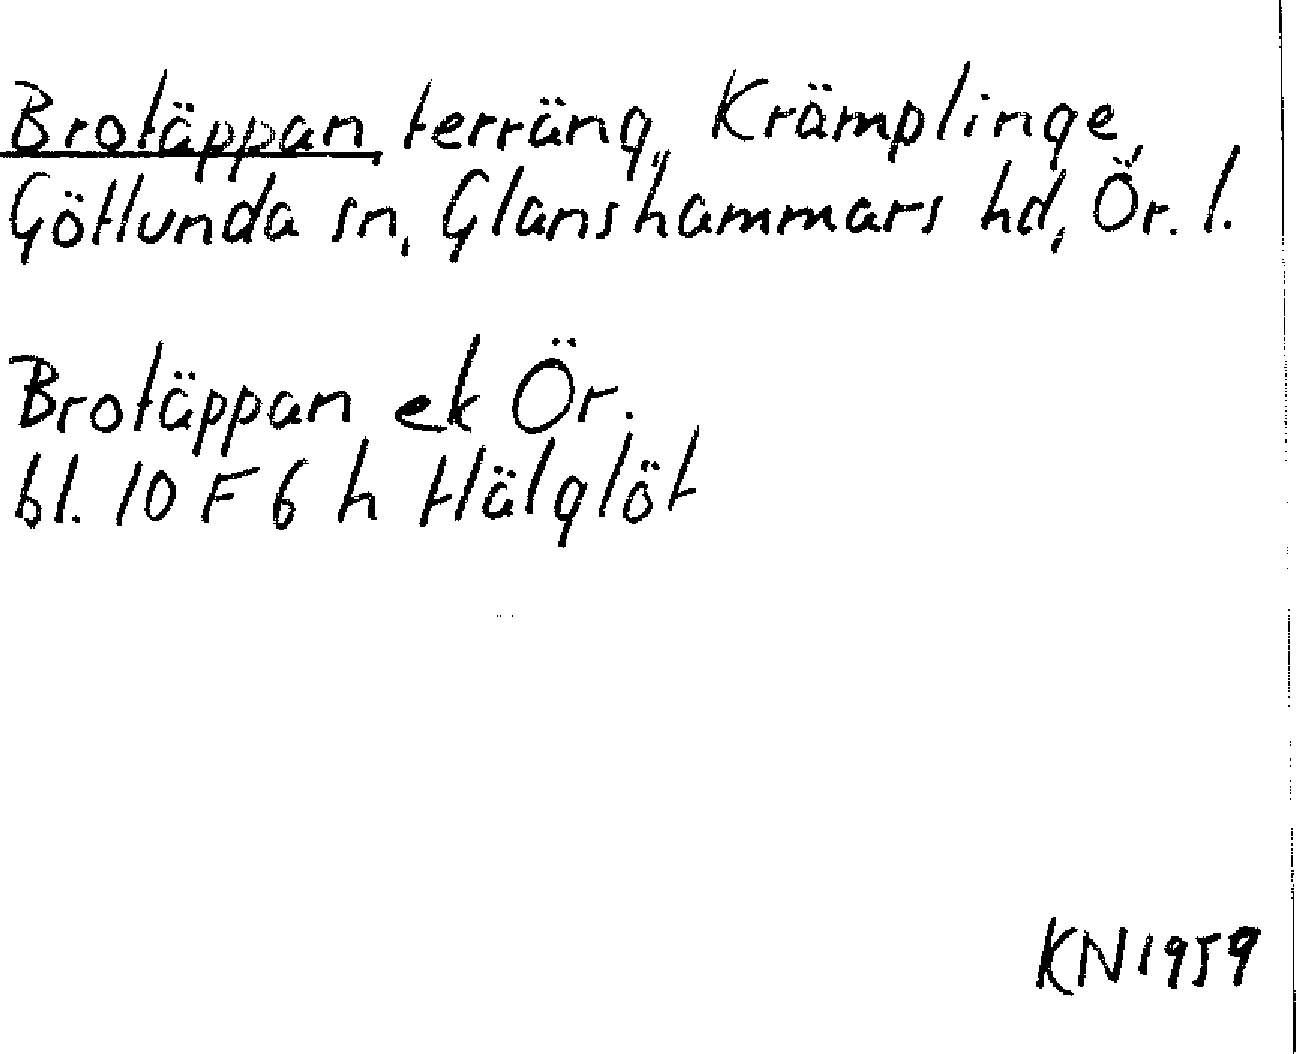 Brotäppan, terräng, Krämplinge,
Götlunda sn, Glanshammars hd, Ör. l.
Brotäppan ek Ör.
bl. 10 F 6 h Hälglöt
KN 1959